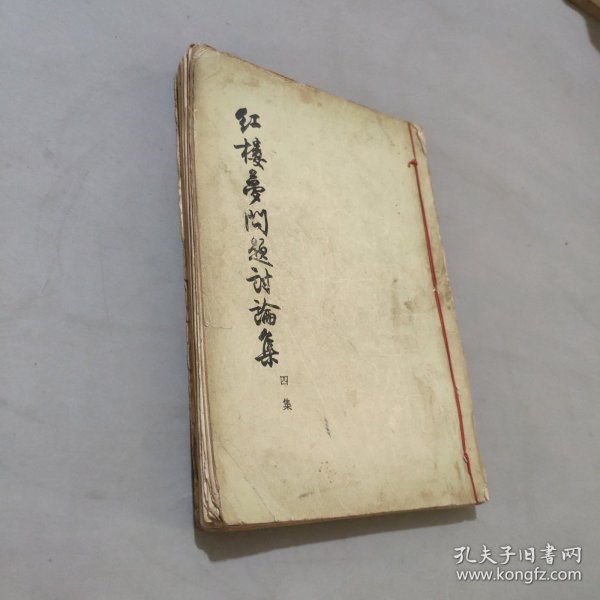 红楼夢问题討論集
四集
孔夫子旧书网
www.kongfz.com